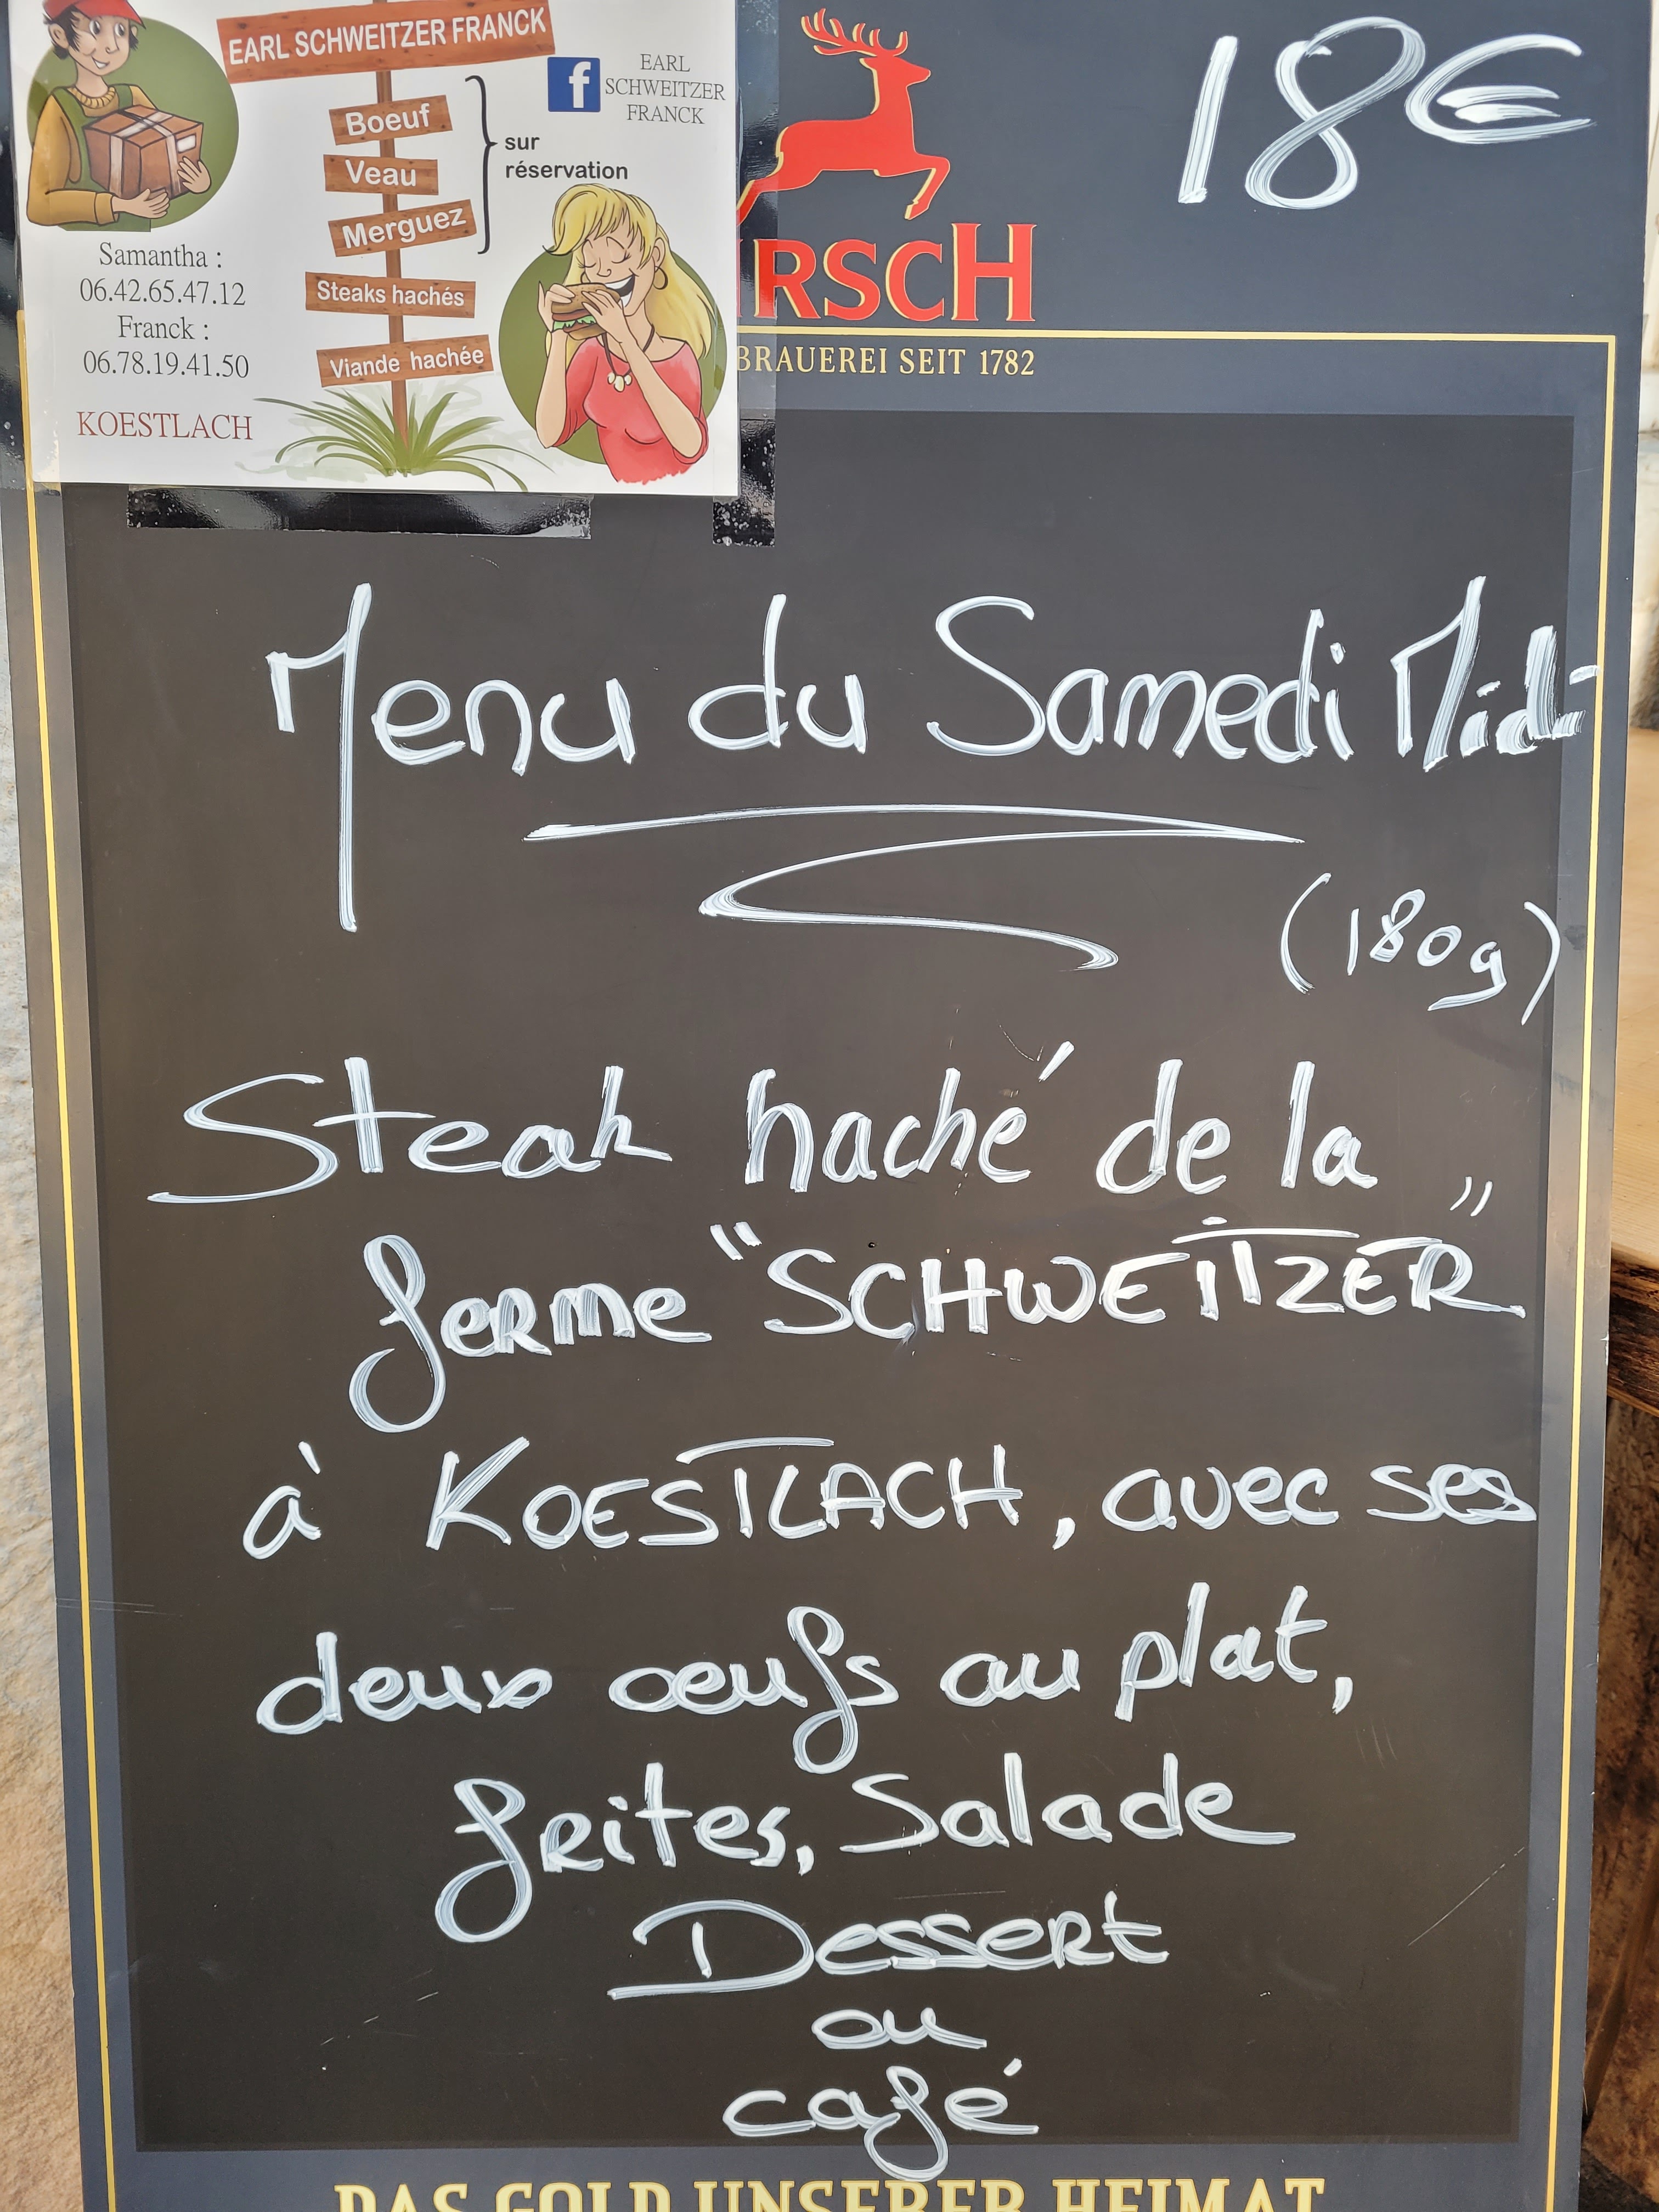 EARL SCHWEITZER FRANCK
EARL
SCHWEITZER
FRANCK
Boeuf
Veau
Merguez
sur
réservation
Steaks hachés
Viande hachée
Samantha :
06.42.65.47.12
Franck :
06.78.19.41.50
KOESTLACH
RSCH
BRAUEREI SEIT 1782
18€
Menu du Samedi Midi
(180g)
Steak haché de la
ferme "SCHWEITZER"
à KOESTLACH, avec ses
deux œufs au plat,
frites, Salade
Dessert
ou
café
DAS GOLD UNSERER HEIMAT